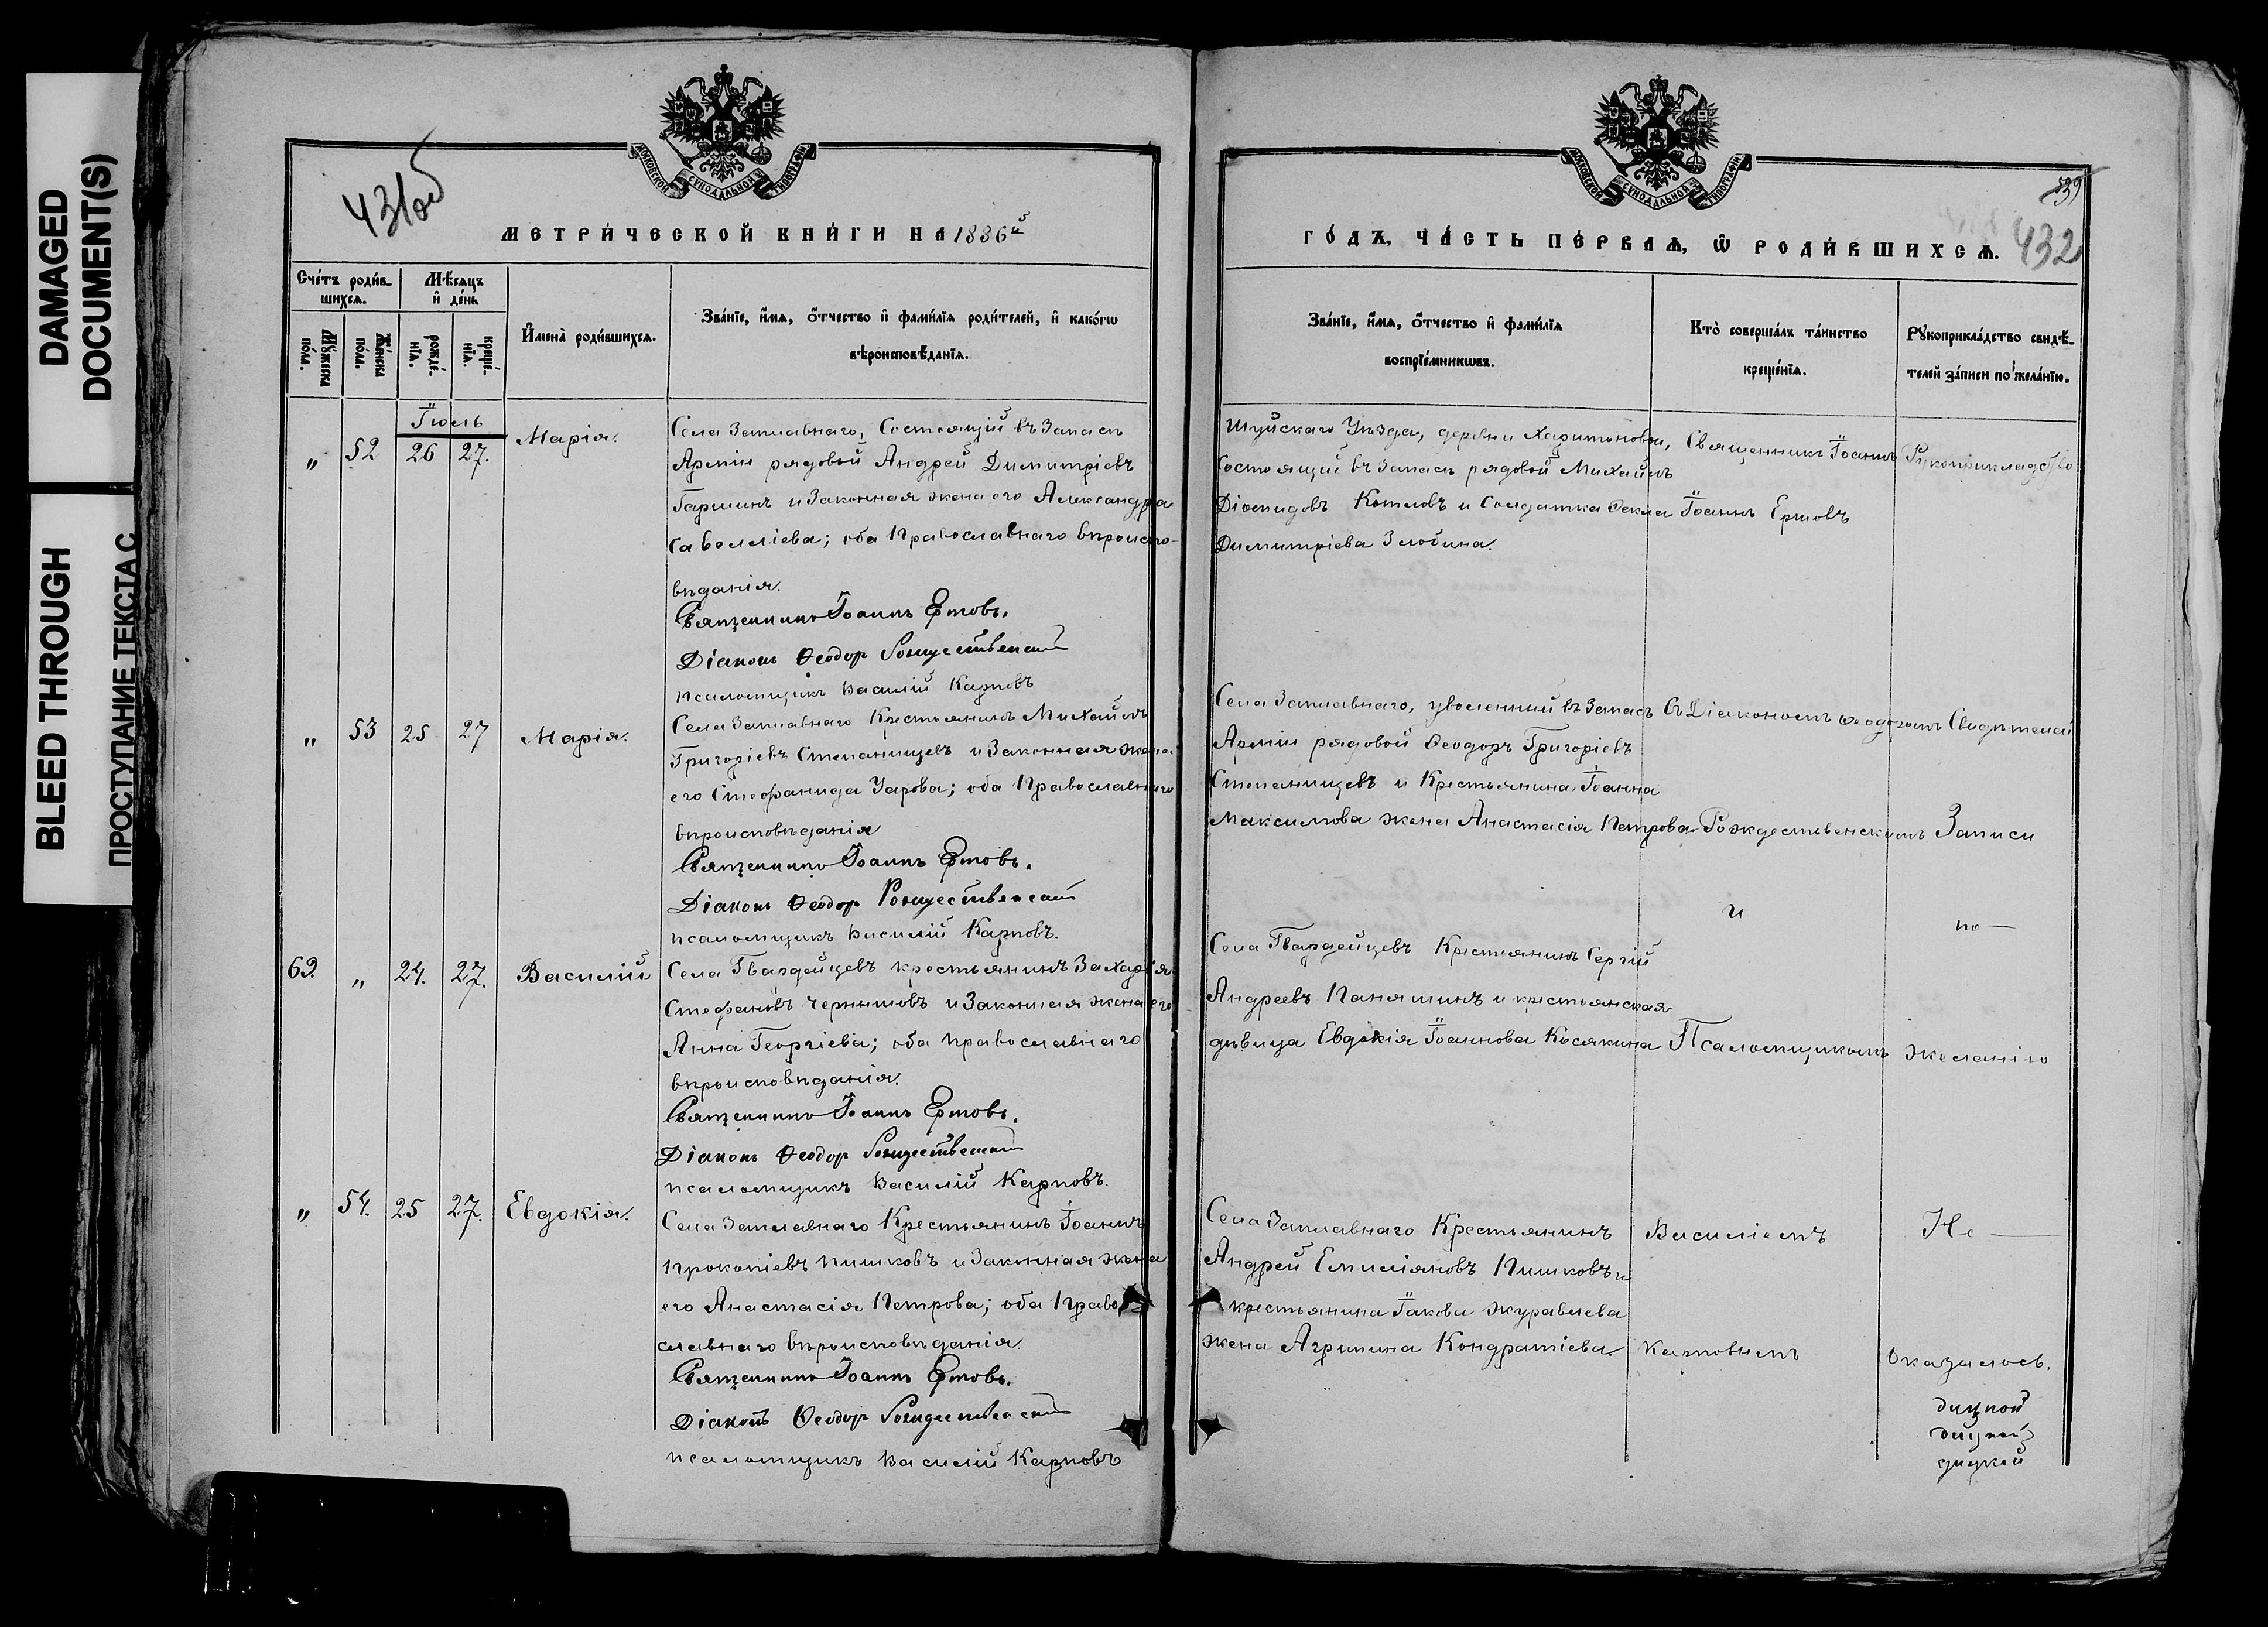 DAMAGED
DOCUMENT(S)
BLEED THROUGH
ПРОСТУПАНИЕ ТЕКСТА С
431об
МОСКОВСКОЙ СѴНОДАЛЬНОЙ ТИПОГРАФІИ
МЕТРИ́ЧЕСКОЙ КНИ́ГИ НА 1886й
Сче́тъ роди́в-
шихсѧ.
Мѣ́сѧцъ
и҆ де́нь
Мꙋ́жеска
по́ла.
Же́нска
по́ла.
рожде́-
нїѧ.
креще́-
нїѧ.
И҆мена̀ роди́вшихсѧ.
Зва́нїе, и҆́мѧ, о҆́тчество и҆ фами́лїѧ роди́телей, и҆ како́гѡ
вѣроисповѣ́данїѧ.
Іюль
„ 52 26 27. Марія.
Села Заплавнаго, Состоящій въ Запасѣ
Арміи рядовой Андрей Димитріевъ
Гаршинъ и Законная жена его Александра
Савелліева; оба Православнаго вѣроиспо-
вѣданія.
Священникъ Іоаннъ Ершовъ.
Діаконъ Ѳеодоръ Рождественскій
псаломщикъ Василій Карповъ
„ 53 25 27 Марія.
Села Заплавнаго Крестьянинъ Михаилъ
Григоріевъ Степанищевъ и Законная жена
его Стефанида Уарова; оба Православнаго
вѣроисповѣданія
Священникъ Іоаннъ Ершовъ.
Діаконъ Ѳеодоръ Рождественскій
псаломщикъ Василій Карповъ.
62. „ 24. 27. Василій
Села Гвардейцевъ крестьянинъ Захарія
Стефановъ Чернышовъ и Законная жена его
Анна Георгіева; оба православнаго
вѣроисповѣданія.
Священникъ Іоаннъ Ершовъ.
Діаконъ Ѳеодоръ Рождественскій
псаломщикъ Василій Карповъ.
„ 54. 25 27. Евдокія.
Села Заплавнаго Крестьянинъ Іоаннъ
Прокопіевъ Пишковъ и Законная жена
его Анастасія Петрова; оба Право-
славнаго вѣроисповѣданія.
Священникъ Іоаннъ Ершовъ.
Діаконъ Ѳеодоръ Рождественскій
псаломщикъ Василій Карповъ
МОСКОВСКОЙ СѴНОДАЛЬНОЙ ТИПОГРАФІИ
432
ГО́ДЪ, ЧА́СТЬ ПЕ́РВАѦ, Ѽ РОДИ́ВШИХСѦ.
Зва́нїе, и҆́мѧ, о҆́тчество и҆ фами́лїѧ
воспрїе́мникѡвъ.
Кто̀ соверша́лъ та́инство
креще́нїѧ.
Рꙋкоприкла́дство свидѣ́-
телей за́писи по жела́нїю.
Шуйскаго Уѣзда, деревни Харитоновки,
Состоящій въ Запасѣ рядовой Михаилъ
Діомидовъ Котловъ и Солдатка Ѳекла
Димитріева Злобина.
Священникъ Іоаннъ
Іоаннъ Ершовъ
Рукоприкладство
Села Заплавнаго, уволенный въ Запасъ
Арміи рядовой Ѳеодоръ Григоріевъ
Степанищевъ и Крестьянина Іоанна
Максимова жена Анастасія Петрова
Съ Діакономъ Ѳеодоромъ
Рождественскимъ
Свидѣтелей
Записи
и
по —
Села Гвардейцевъ Крестьянинъ Сергій
Андреевъ Паняшинъ и крестьянская
дѣвица Евдокія Іоаннова Косякина
Псаломщикомъ
желанію
Села Заплавнаго Крестьянинъ
Андрей Емиліановъ Пишковъ и
крестьянина Іакова Журавлева
жена Агрипина Кондратіева.
Василіемъ
Карповымъ
Не —
Оказалось.